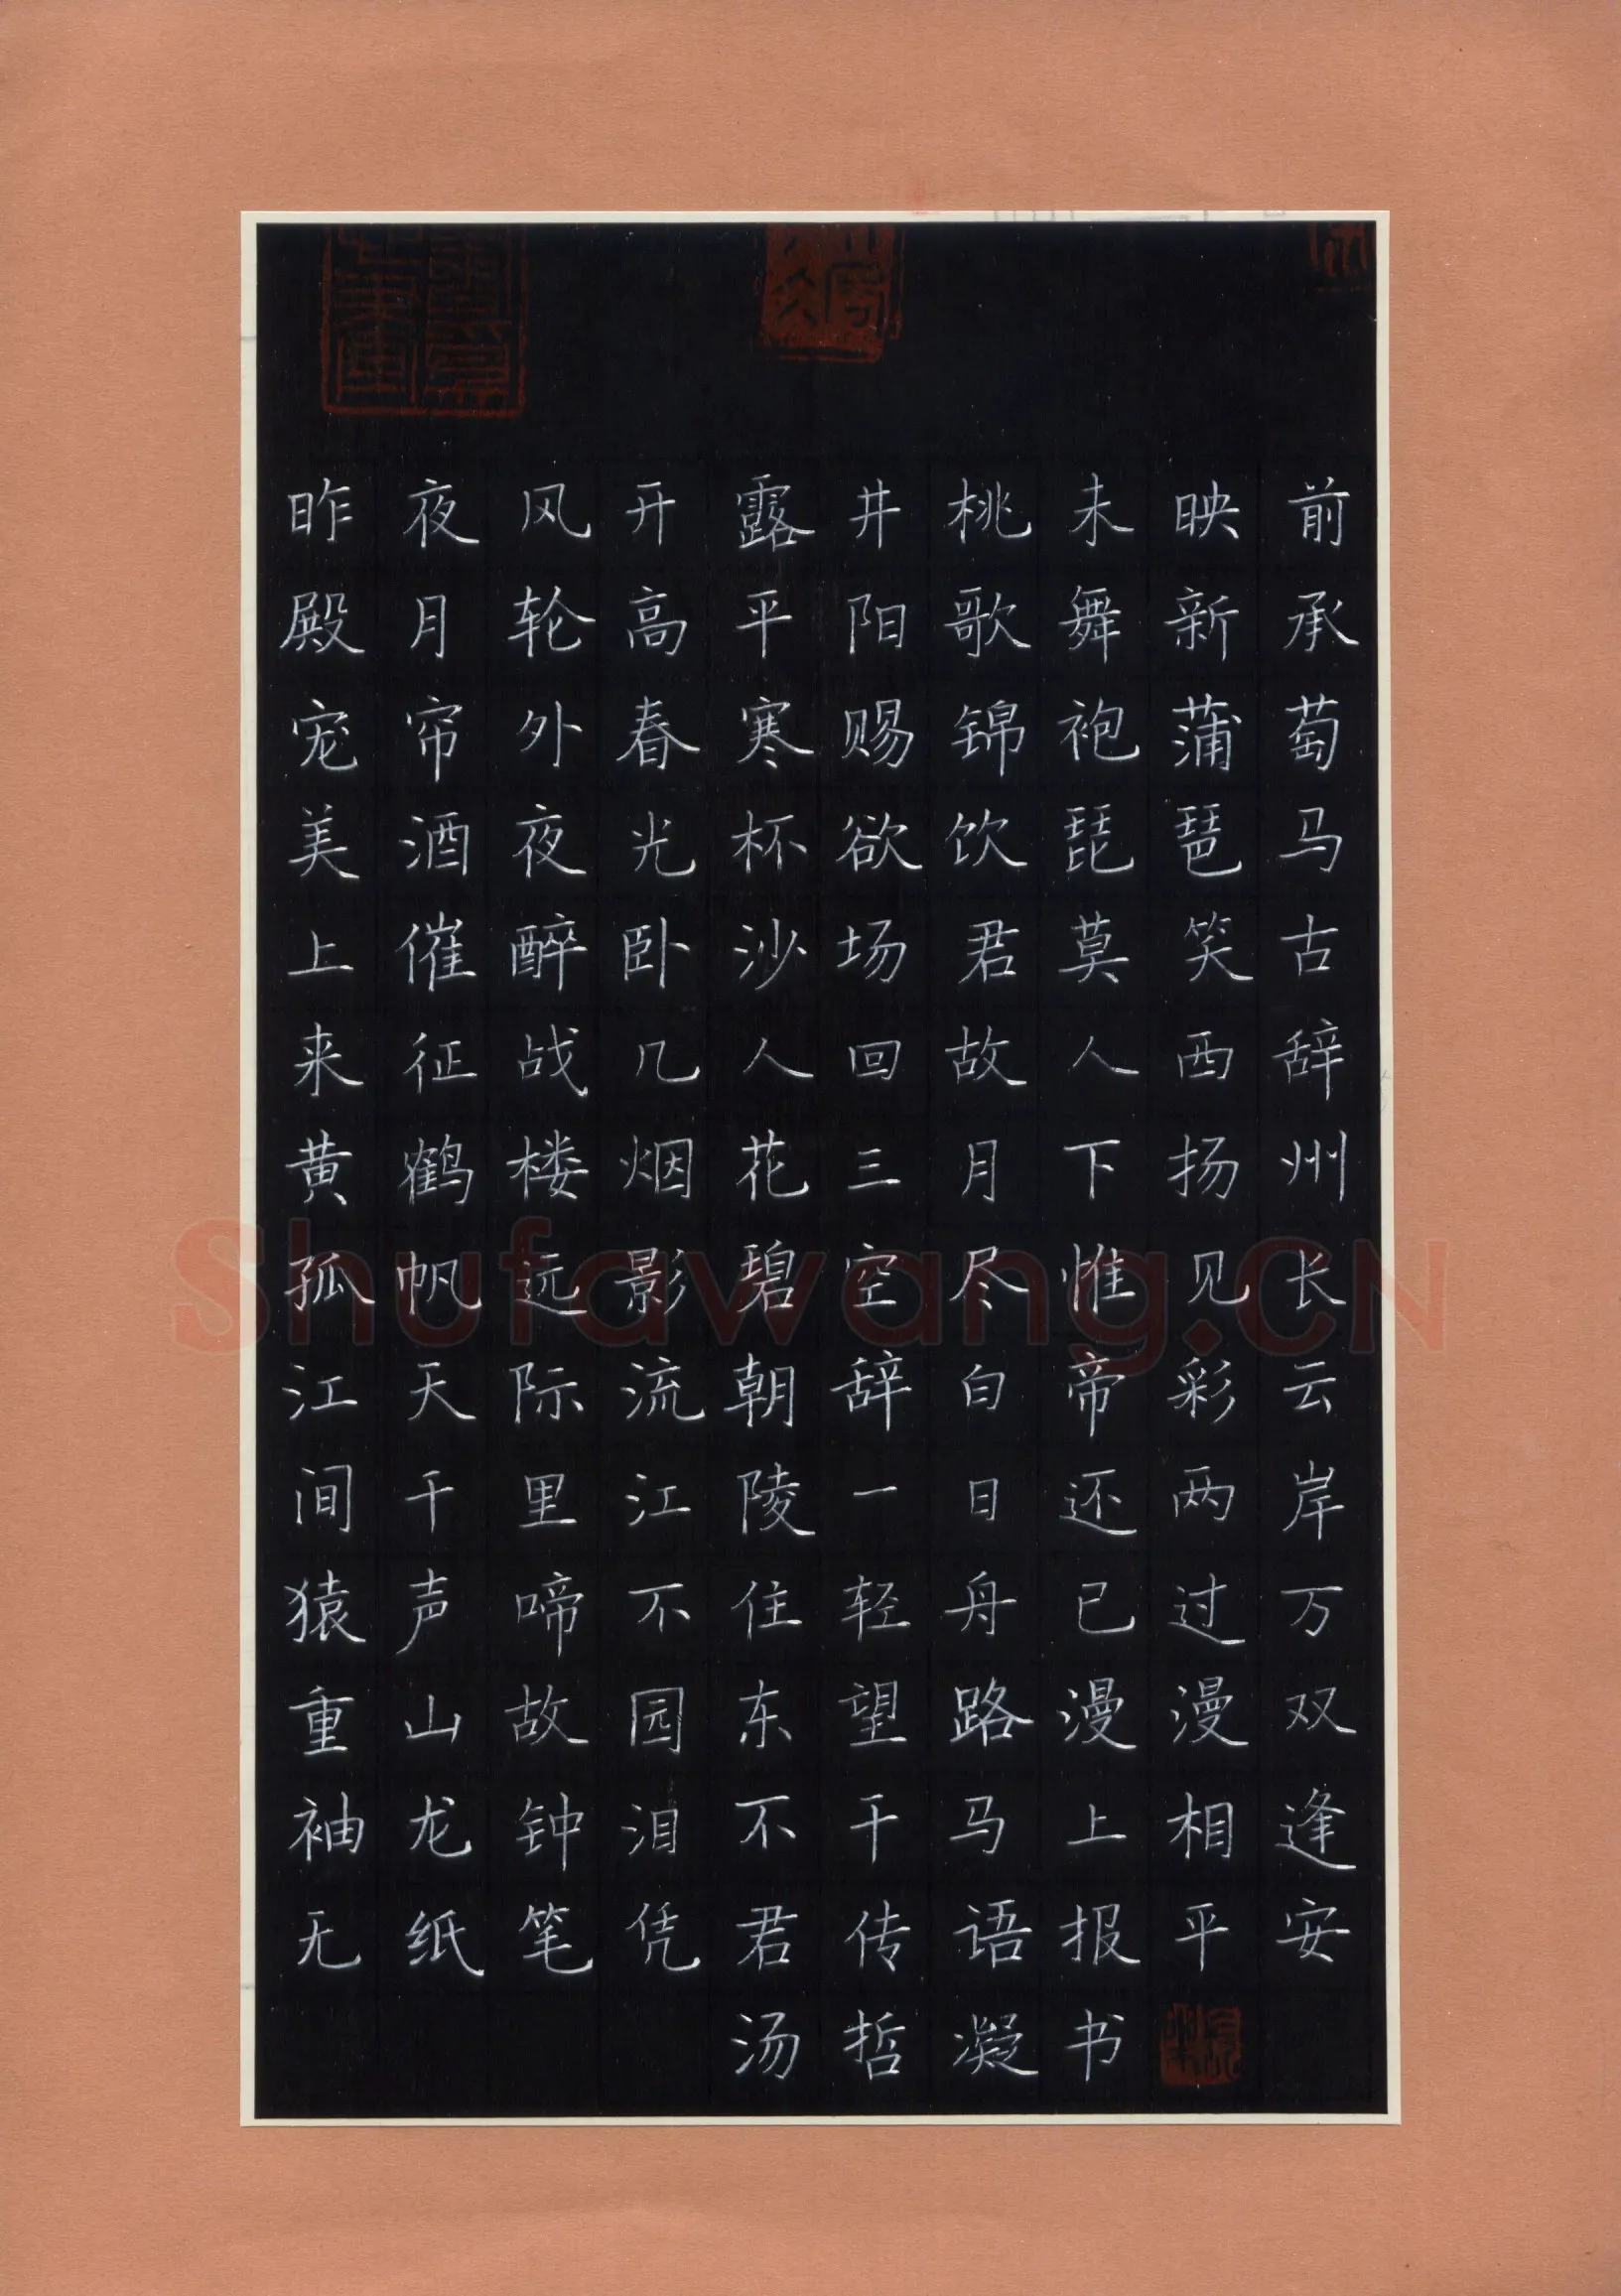 昨夜风开露井桃未映前
殿月轮高平阳歌舞新承
宠帘外春寒赐锦袍蒲萄
美酒夜光杯欲饮琵琶马
上催醉卧沙场君莫笑古
来征战几人回故人西辞
黄鹤楼烟花三月下扬州
孤帆远影碧空尽惟见长
江天际流朝辞白帝彩云
间千里江陵一日还两岸
猿声啼不住轻舟已过万
重山故园东望路漫漫双
袖龙钟泪不干马上相逢
无纸笔凭君传语报平安
汤哲凝书
Shufawang.CN